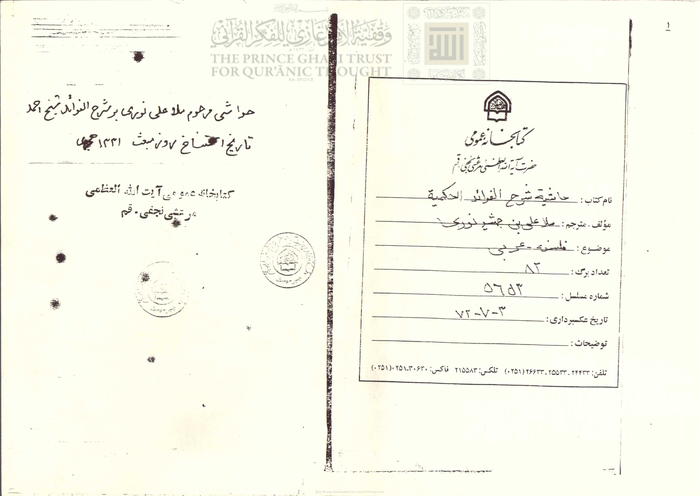 ۱
وقفية الأمير غازي للفكر القرآني
THE PRINCE GHAZI TRUST
FOR QUR'ĀNIC THOUGHT
کتابخانه عمومی
حضرت آیة الله العظمی مرعشی نجفی قم
نام کتاب: حاشیة شرح الفوائد الحکمیة
مؤلف. مترجم: ملا علی بن جمشید نوری
موضوع: فلسفه - عربی
تعداد برگ: ۸۲
شماره مسلسل: ۵۶۵۲
تاریخ عکسبرداری: ۳-۷-۷۲
توضیحات:
تلفن: ۲۴۴۳۳ـ۲۵۵۳۳ـ۲۶۶۳۳(۰۲۵۱) تلکس: ۲۱۵۵۸۳ فاکس: ۳۰۶۳۰ـ۰۲۵۱(۰۲۵۱)
حواشی مرحوم ملا علی نوری بر شرح الفوائد شیخ احمد
تاریخ روز مبعث ۱۳۳۱
کتابخانه عمومی آیت الله العظمی
مرعشی نجفی - قم